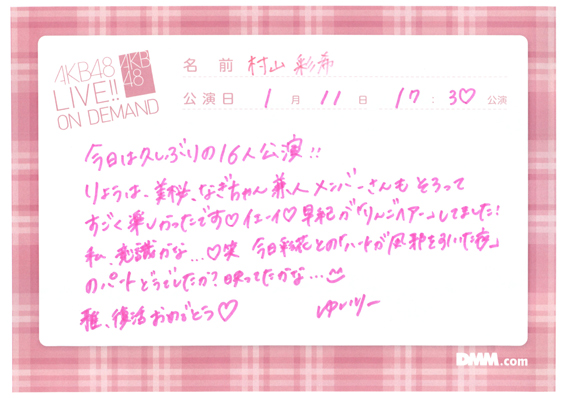 AKB48
LIVE!!
ON DEMAND
AKB
48
名 前 村山 彩希
公演日 1 月 11 日 17 : 30 公演
今日は久しぶりの16人公演!!
りょうは、美桜、なぎちゃん兼任メンバーさんもそろって
すごく楽しかったです♡イェーイ♡早紀が「りんごヘアー」してました!
私、意識かな...♡笑 今日彩花との「ハートが風邪を引いた夜」
のパートどうでしたか?映ってたかな...
雅、復活おめでとう♡ ゆいりー
DMM.com